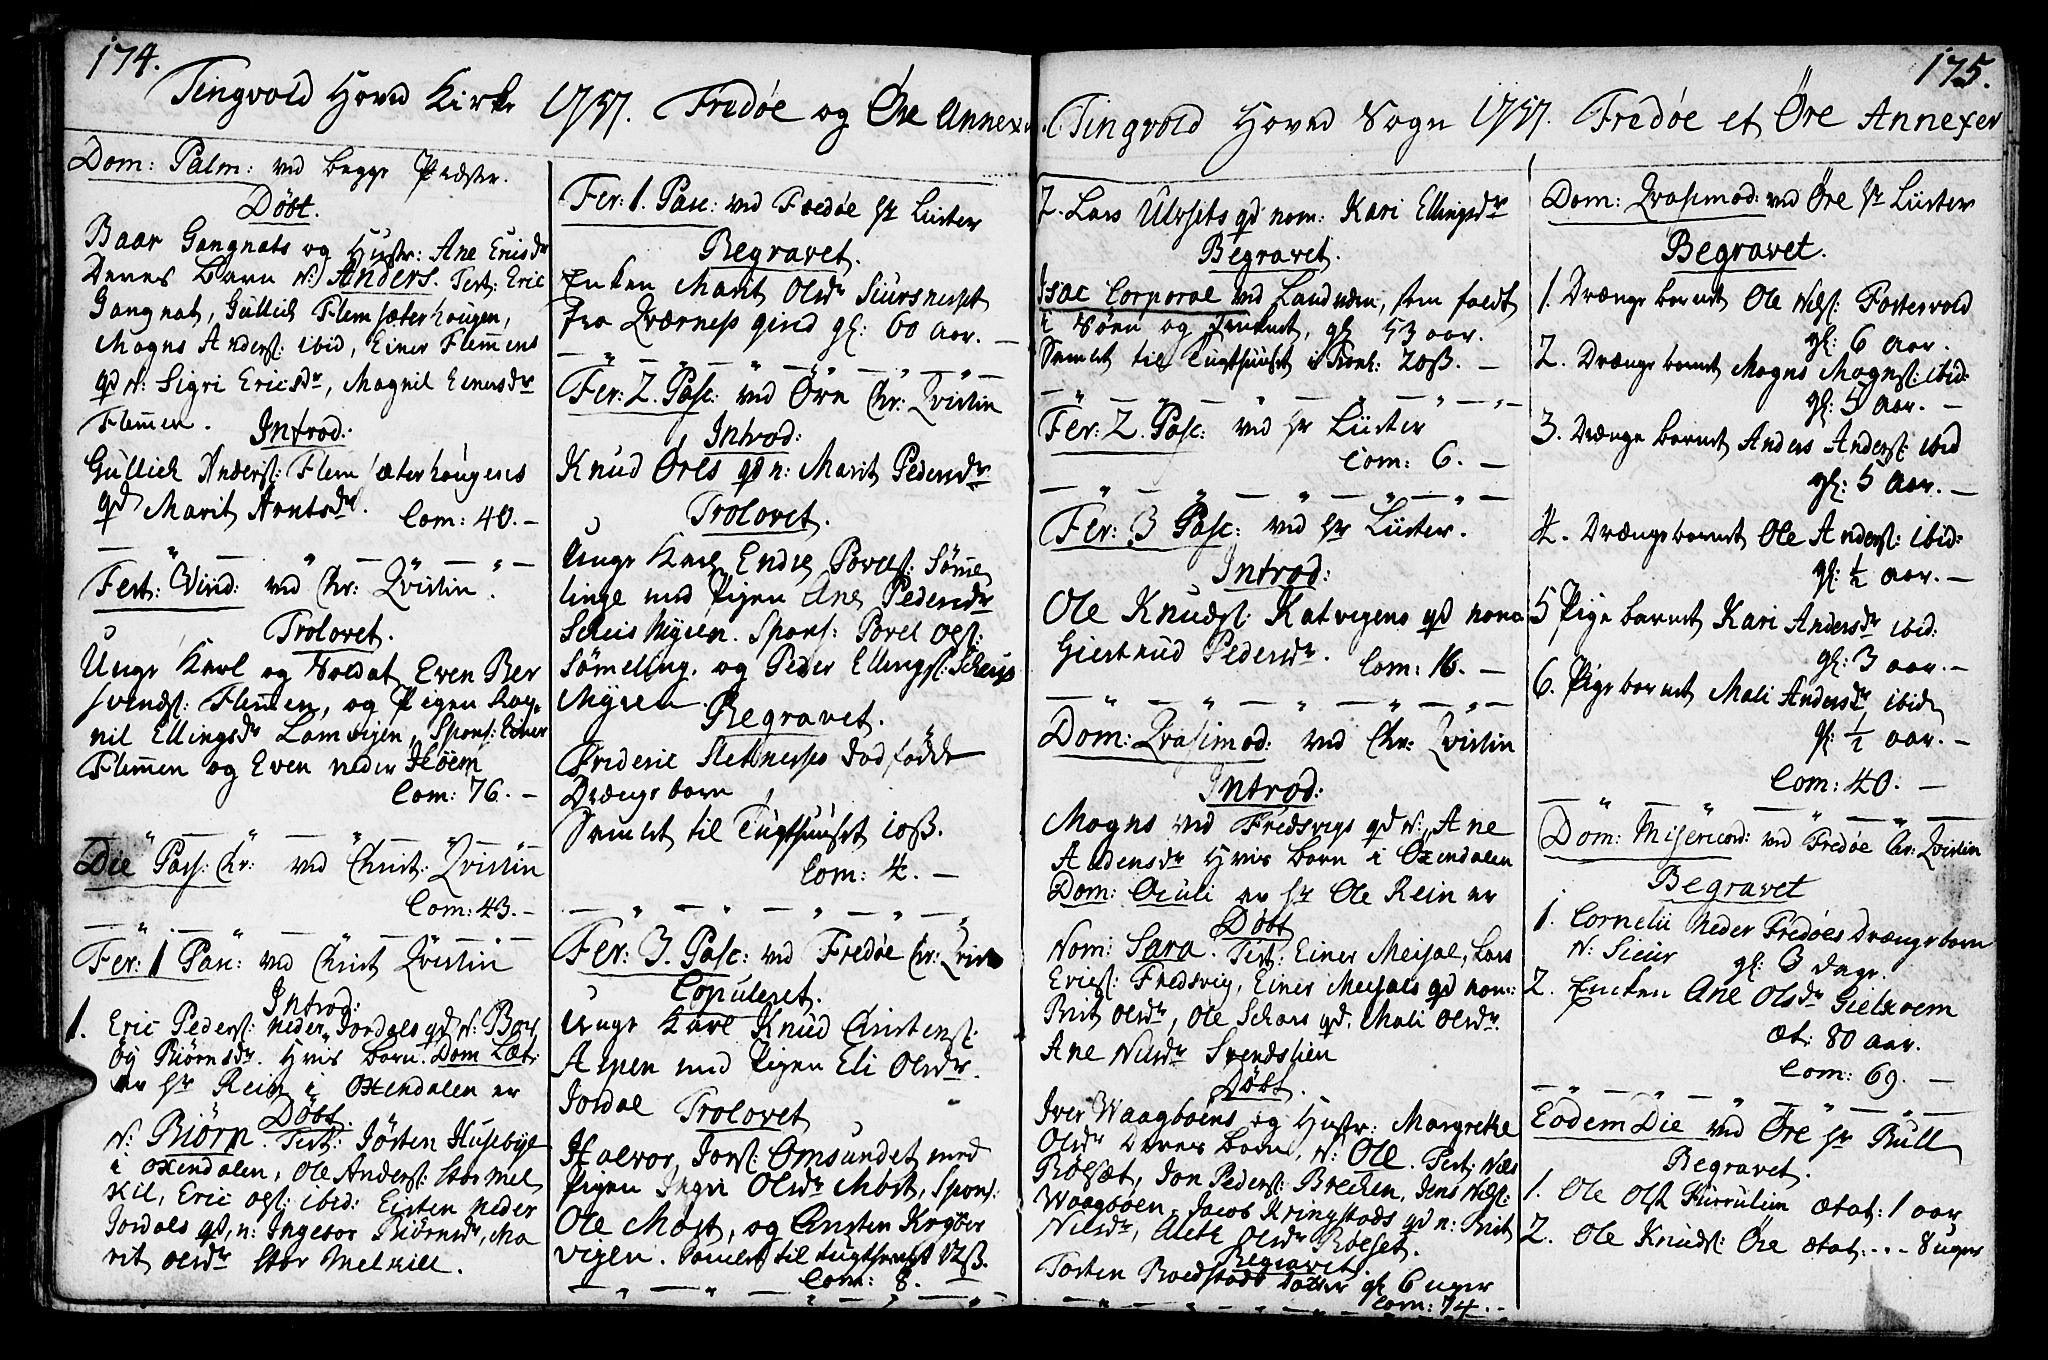 174.
Tingvold Hoved Kirke 1757. Fredøe og Øre Annexer
Dom: Palm: ved begge Præster.
Døbt.
Baar Gangnats og Hustr: Ane Ericsdr
Deres Barn N: Anders. Test: Eric
Gangnat, Gullich Flemsæterhougen,
Mogns Anders: ibid, Einer Flemmens
qd N: Sigri Ericsdr, Magnil Einersdr
Flemmen.
Introd:
Gullich Anders: Flemsæterhougens
qd Marit Arntsdr.
Com: 40. —
Fest: Vind: ved Chr: Qvistin.
Trolovet.
Unge Karl og Soldat Even Ber
svends: Flemmen, og Pigen Rag-
nil Ellingsdr Lamvigen, Spons: Einer
Flemmen og Even neder
Com: 76. —
Die Pasch: ved Christ: Qvistin
Com: 43. —
Fer: 1 Pasc: ved Christ Qvistin
Introd:
1. Eric Peders: neder Jordals qd N:
Biørnsdr. Hvis Barn Dom Læt:
er hr Rein i Oxendalen er
Døbt.
N: Biørn. Test: Jøsten Husebye
i Oxendalen, Ole Anders: Stor Mel
kil, Eric Ols: ibid: Eisten neder
Jordals qd, n: Ingebor Biørnsdr, Ma
rit Olsdr Stor Melkill.
Fer: 1. Pasc: ved Fredøe hr Lüster
Begravet.
Enken Marit Olsdr Siursneset
fra Qværness gield gl: 60 aar. —
Fer: 2. Pasc: ved Øre Chr: Qvistin
Introd:
Knud Øres qd n: Marit Pedersdr
Trolovet.
Unge Karl Endre Povels: Sømme
linge med Pigen Ane Pedersdr
Scheis Myren. Spons: Povel Ols:
Sømeling, og Peder Ellings: Scheis
Myren
Begravet.
Frideric Stetnesses dødfødde
Drænge barn
Samlet til Tugthuuset 10ß.
Com: 4. —
Fer: 3. Pasc: ved Fredøe Chr: Qvist
Copuleret.
Unge Karl Knud Christens:
Aspen med Pigen Eli Olsdr.
Jordal
Trolovet
Halvor Jons: Omsundet med
Pigen Ingri Olsdr Møst, Spons:
Ole Møst, og Christen
vigen. Samlet til tugthuuset
Com: 8. —
175.
Tingvold Hoved Sogn 1757. Fredøe et Øre Annexer
7. Lars Ulvsets qd nom: Kari Ellingsdr
Begravet.
Isac Corporal ved Landvæn, som faldt
i Søen og gl 53 aar.
Samlet til Tugthuuset i Tronh: 20ß. —
Fer: 2. Pasc: ved hr Lüster
Com: 6. —
Fer: 3 Pasc: ved hr Lüster.
Introd:
Ole Knuds: Katvigens qd nom:
Giertrud Pedersdr.
Com: 16. —
Dom: Qvasimod: ved Chr: Qvistin
Introd:
Mogns ved Fredsvigs qd N: Ane
Andersdr Hvis barn i Oxendalen
Dom: Oculi er hr Ole Rein er
Døbt
Nom: Sara. Test: Einer Meisal, Lars
Erics: Fredsvig, Einer Meisals qd nom:
Brit Olsdr, Ole Schars qd, Mali Olsdr.
Ane Nilsdr Svendslien
Døbt.
Iver Waagbøens og Hustr: Margrethe
Olsdr Deres barn, N: Ole. Test: Nils
Rølset, Jon Peders: Brechen, Jens Nils:
Waagbøen, Jacob Kringstads qd n: Brit
Nilsdr, Alethe Olsdr Rølset.
Begravet.
Torsten Roedstads datter gl 6 uger
Com: 74. —
Dom: Qvasimod: ved Øre hr Lüster
Begravet.
1. Drænge barnet Ole Nils: Fostervold
gl: 6 aar.
2. Drænge barnet Mogns Mogns: ibid:
gl: 5 aar. —
3. Drænge barnet Anders Anders: ibid
gl: 5 aar. —
4. Drænge barnet Ole Anders: ibid:
gl: ½ aar. —
5 Pige barnet Kari Andersdr ibid:
gl: 3 aar. —
6. Pige barnet Mali Andersdr ibid
gl: ½ aar. —
Com: 40. —
Dom: Misericord: ved Fredøe Chr: Qvistin
Begravet
1. Cornelii neder Fredøes Drænge barn
N: Siur gl: 3 dage.
2. Encken Ane Olsdr
æt: 80 aar.
Com: 69. —
Eodem Die ved Øre hr Bull
Begravet.
1. Ole Ols: Furrulien ætat: 1 aar
2. Ole Knuds: Øre ætat: . . - 8 uger